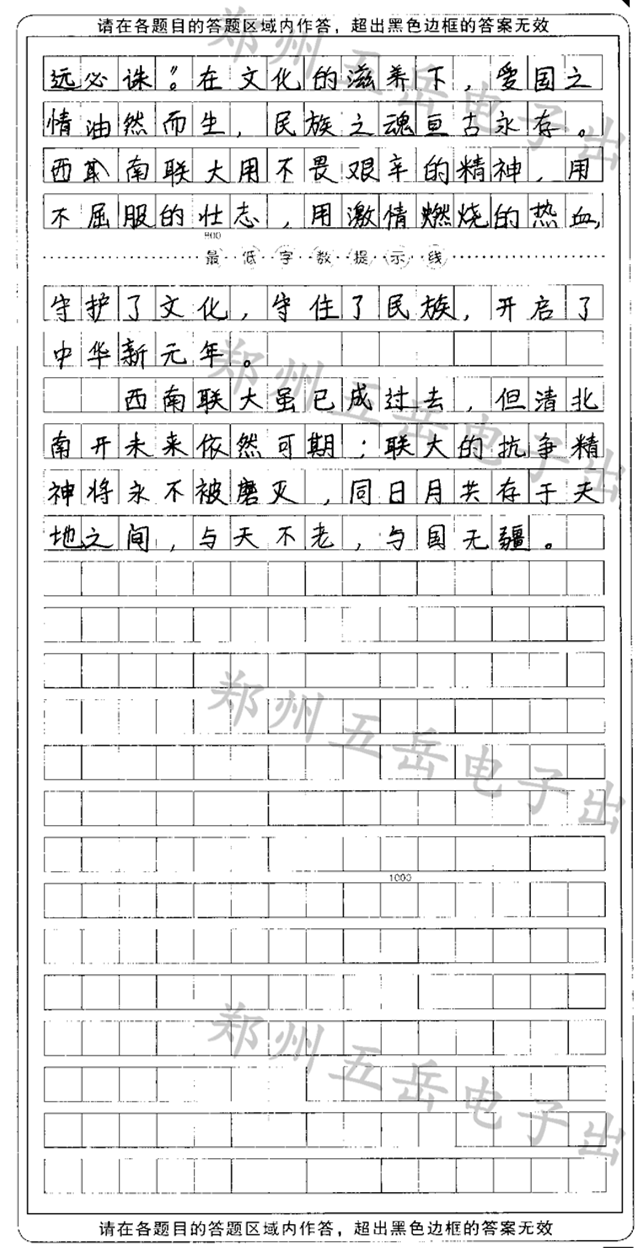 请在各题目的答题区域内作答，超出黑色边框的答案无效
远必诛”。在文化的滋养下，爱国之
情油然而生，民族之魂亘古永存。
西南联大用不畏艰辛的精神，用
不屈服的壮志，用激情燃烧的热血，
800
最低字数提示线
守护了文化，守住了民族，开启了
中华新元年。
西南联大虽已成过去，但清北
南开未来依然可期；联大的抗争精
神将永不被磨灭，同日月共存于天
地之间，与天不老，与国无疆。
1000
郑州五岳电子出
郑州五岳电子出
郑州五岳电子出
郑州五岳电子出
请在各题目的答题区域内作答，超出黑色边框的答案无效